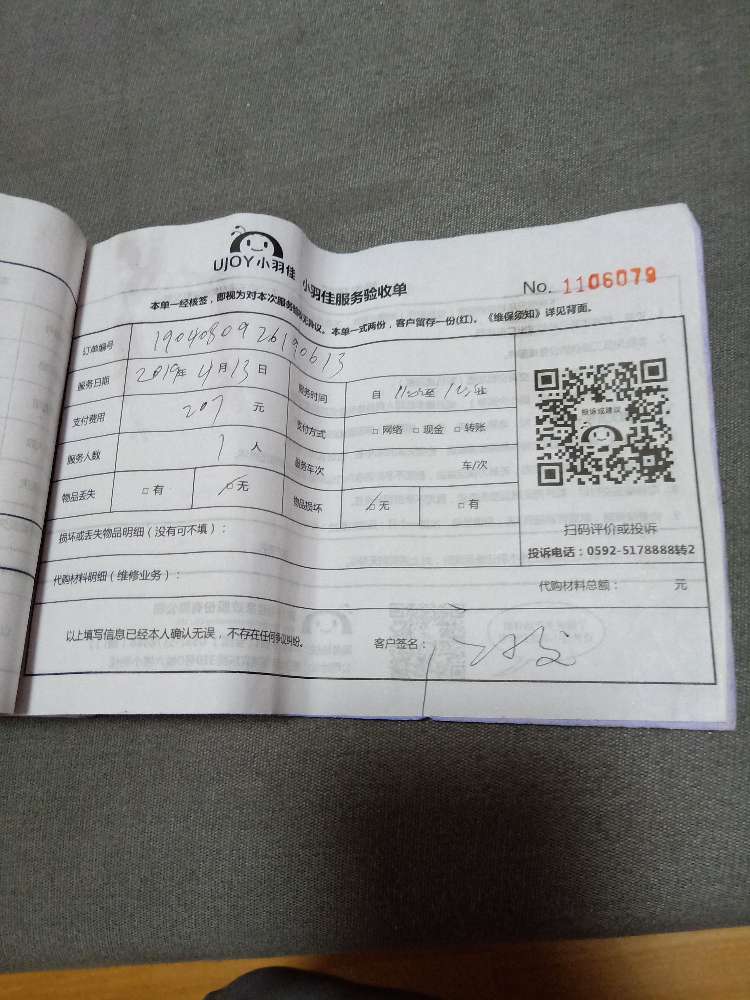 UJOY小羽佳 小羽佳服务验收单
No. 1106079
本单一经核签，即视为对本次服务验收无异议。本单一式两份，客户留存一份(红)。《维保须知》详见背面。
订单编号
服务日期 2019年 4月 13日 服务时间 自 至 止
支付费用 207 元 支付方式 □ 网络 □ 现金 □ 转账
服务人数 1 人 服务车次 车/次
物品丢失 □ 有 □ 无 物品损坏 □ 无 □ 有
投诉或建议
扫码评价或投诉
投诉电话：0592-5178888转2
损坏或丢失物品明细（没有可不填）：
代购材料明细（维修业务）：
代购材料总额： 元
以上填写信息已经本人确认无误，不存在任何争议纠纷。 客户签名：